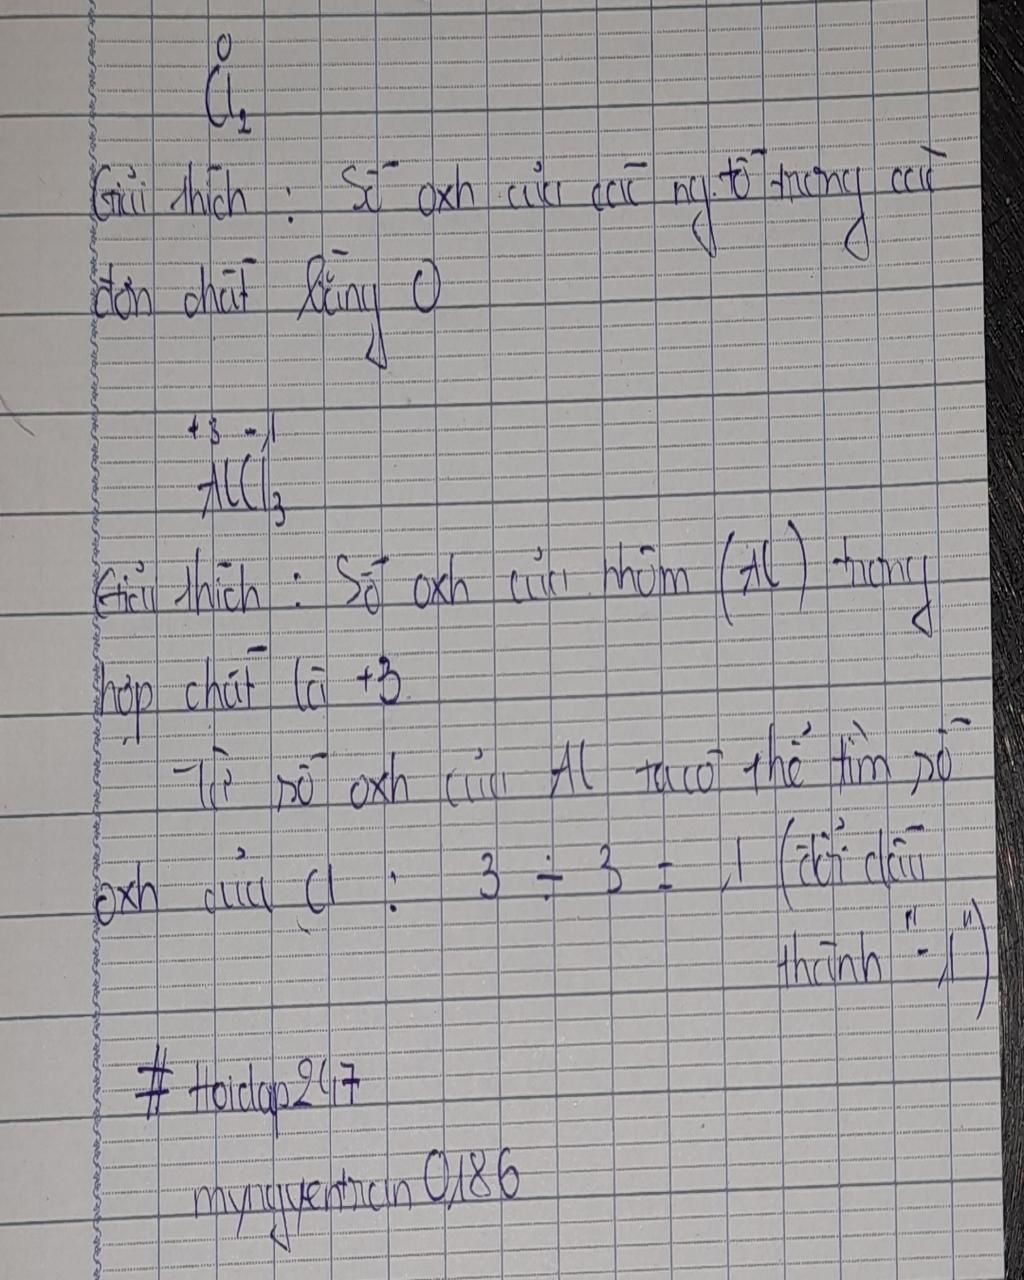 0
Cl₂
Giải thích : Số oxh của các ng.tố trong các
đơn chất bằng 0
+3 -1
AlCl₃
Giải thích : Số oxh của nhôm (Al) trong
hợp chất là +3
Từ số oxh của Al ta có thể tìm số
oxh của Cl : 3 ÷ 3 = 1 (đổi dấu
thành "-1")
# Hoidap247
mynguyentran0186